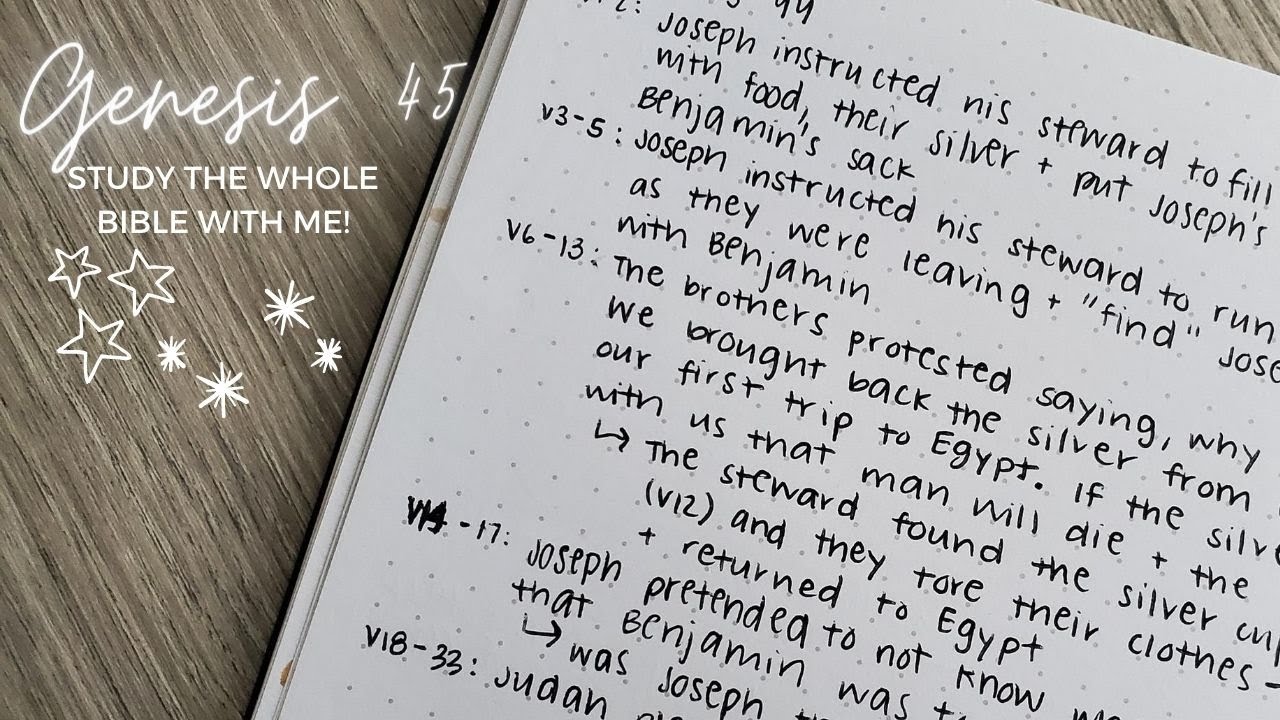 Genesis 45
STUDY THE WHOLE
BIBLE WITH ME!
44
Joseph instructed his steward to fill
with food, their silver + put Joseph's
Benjamin's sack
v3-5: Joseph instructed his steward to run
as they were leaving + "find"
with Benjamin
v6-13: The brothers protested saying, why
We brought back the silver from
our first trip to Egypt. If the
with us that man will die + the
↳ The steward found the silver
(v12) and they tore their clothes -
+ returned to Egypt
v14-17: Joseph pretended to not know
that Benjamin was
↳ was Joseph
v18-33: Judah